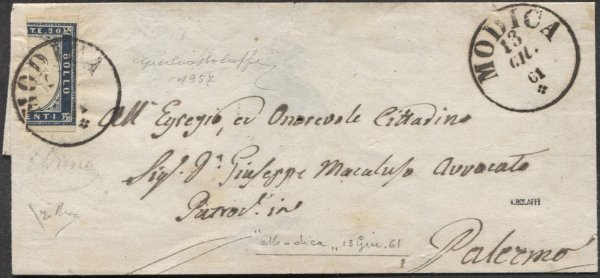 T.E. 20
BOLLO
ENTI
MODICA
MODICA
13
GIU.
61
1957
All' Egregio, ed Onorevole Cittadino
Sigr. Dn. Giuseppe Macaluso Avvocato
Patroc.e in
A.BOLAFFI
"Modica" 13 Giu. 61
Palermo